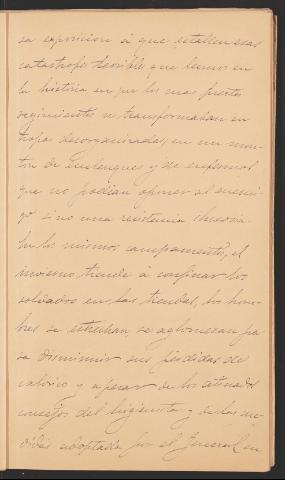 sa exposicion á que estallen esas
catastrofes terribles que leemos en
la historia en que los mas fuertes
regimientos se transformaban en
tropas desorganizadas, en un mon-
ton de enclenques y de enfermos
que no podian oponer al enemi-
go sino una resistencia ilusoria.
En los mismos campamentos, el
invierno tiende á confinar los
soldados en las tiendas, los hom-
bres se estrechan, se aglomeran pa-
ra disminuir sus pérdidas de
calórico y á pesar de los atinados
consejos del higienista y de las me-
didas adoptadas por el General en